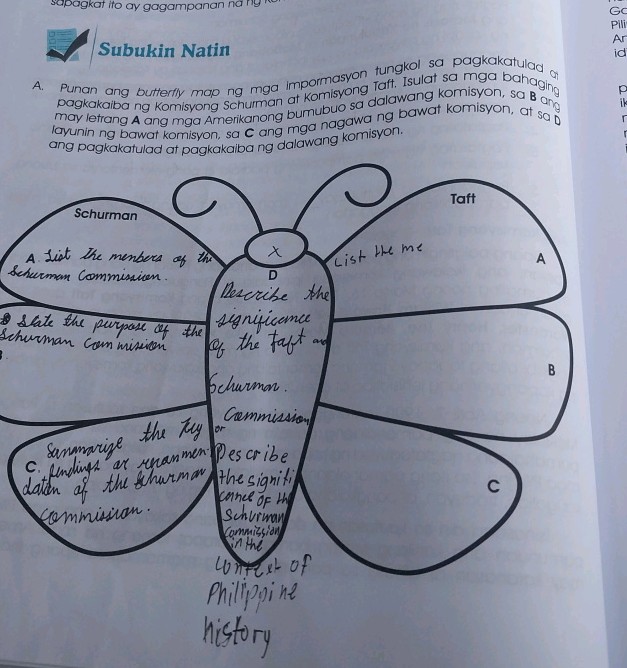 sapagkat ito ay gagampanan na ng
Subukin Natin
A. Punan ang butterfly map ng mga impormasyon tungkol sa pagkakatulad at
pagkakaiba ng Komisyong Schurman at Komisyong Taft. Isulat sa mga bahaging
may letrang A ang mga Amerikanong bumubuo sa dalawang komisyon, sa B ang
layunin ng bawat komisyon, sa C ang mga nagawa ng bawat komisyon, at sa D
ang pagkakatulad at pagkakaiba ng dalawang komisyon.
Schurman
A. List the menbers of the
Schurman Commission.
B State the purpose of the
Schurman Commission
Sammarize the Key
C. findings or recommen
dation of the Schurman
Commission.
X
D
Describe the
significance
of the Taft and
Schurman.
Commission
or
Describe
the signifi
cance of the
Schurman
Commission
in the
context of
Philippine
history
Taft
List the me
A
B
C
Pili
Ar
id